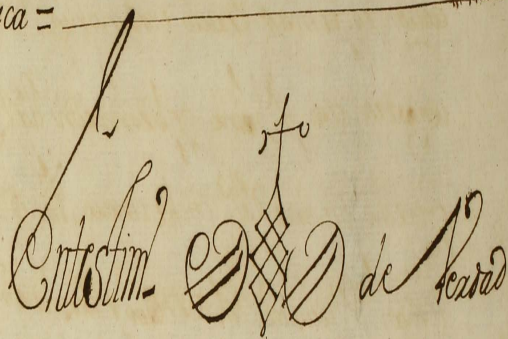 ca =
Entestim.º de Verdad